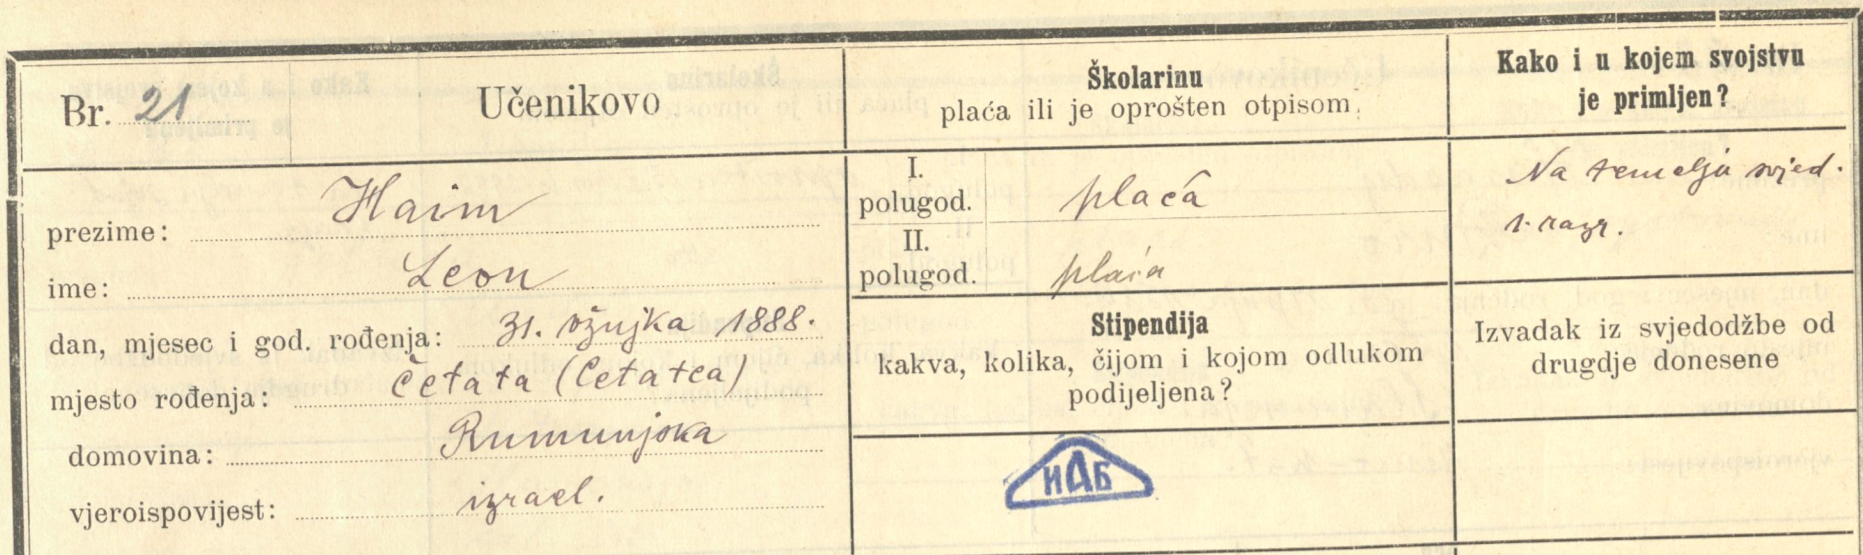 Br. 21
Učenikovo
prezime: Haim
ime: Leon
dan, mjesec i god. rođenja: 31. ožujka 1888.
mjesto rođenja: Četata (Cetatea)
domovina: Rumunjska
vjeroispovijest: izrael.
Školarinu
plaća ili je oprošten otpisom.
I.
polugod. plaća
II.
polugod. plaća
Stipendija
kakva, kolika, čijom i kojom odlukom
podijeljena?
ИАБ
Kako i u kojem svojstvu
je primljen?
Na temelju svjed.
1. razr.
Izvadak iz svjedodžbe od
drugdje donesene